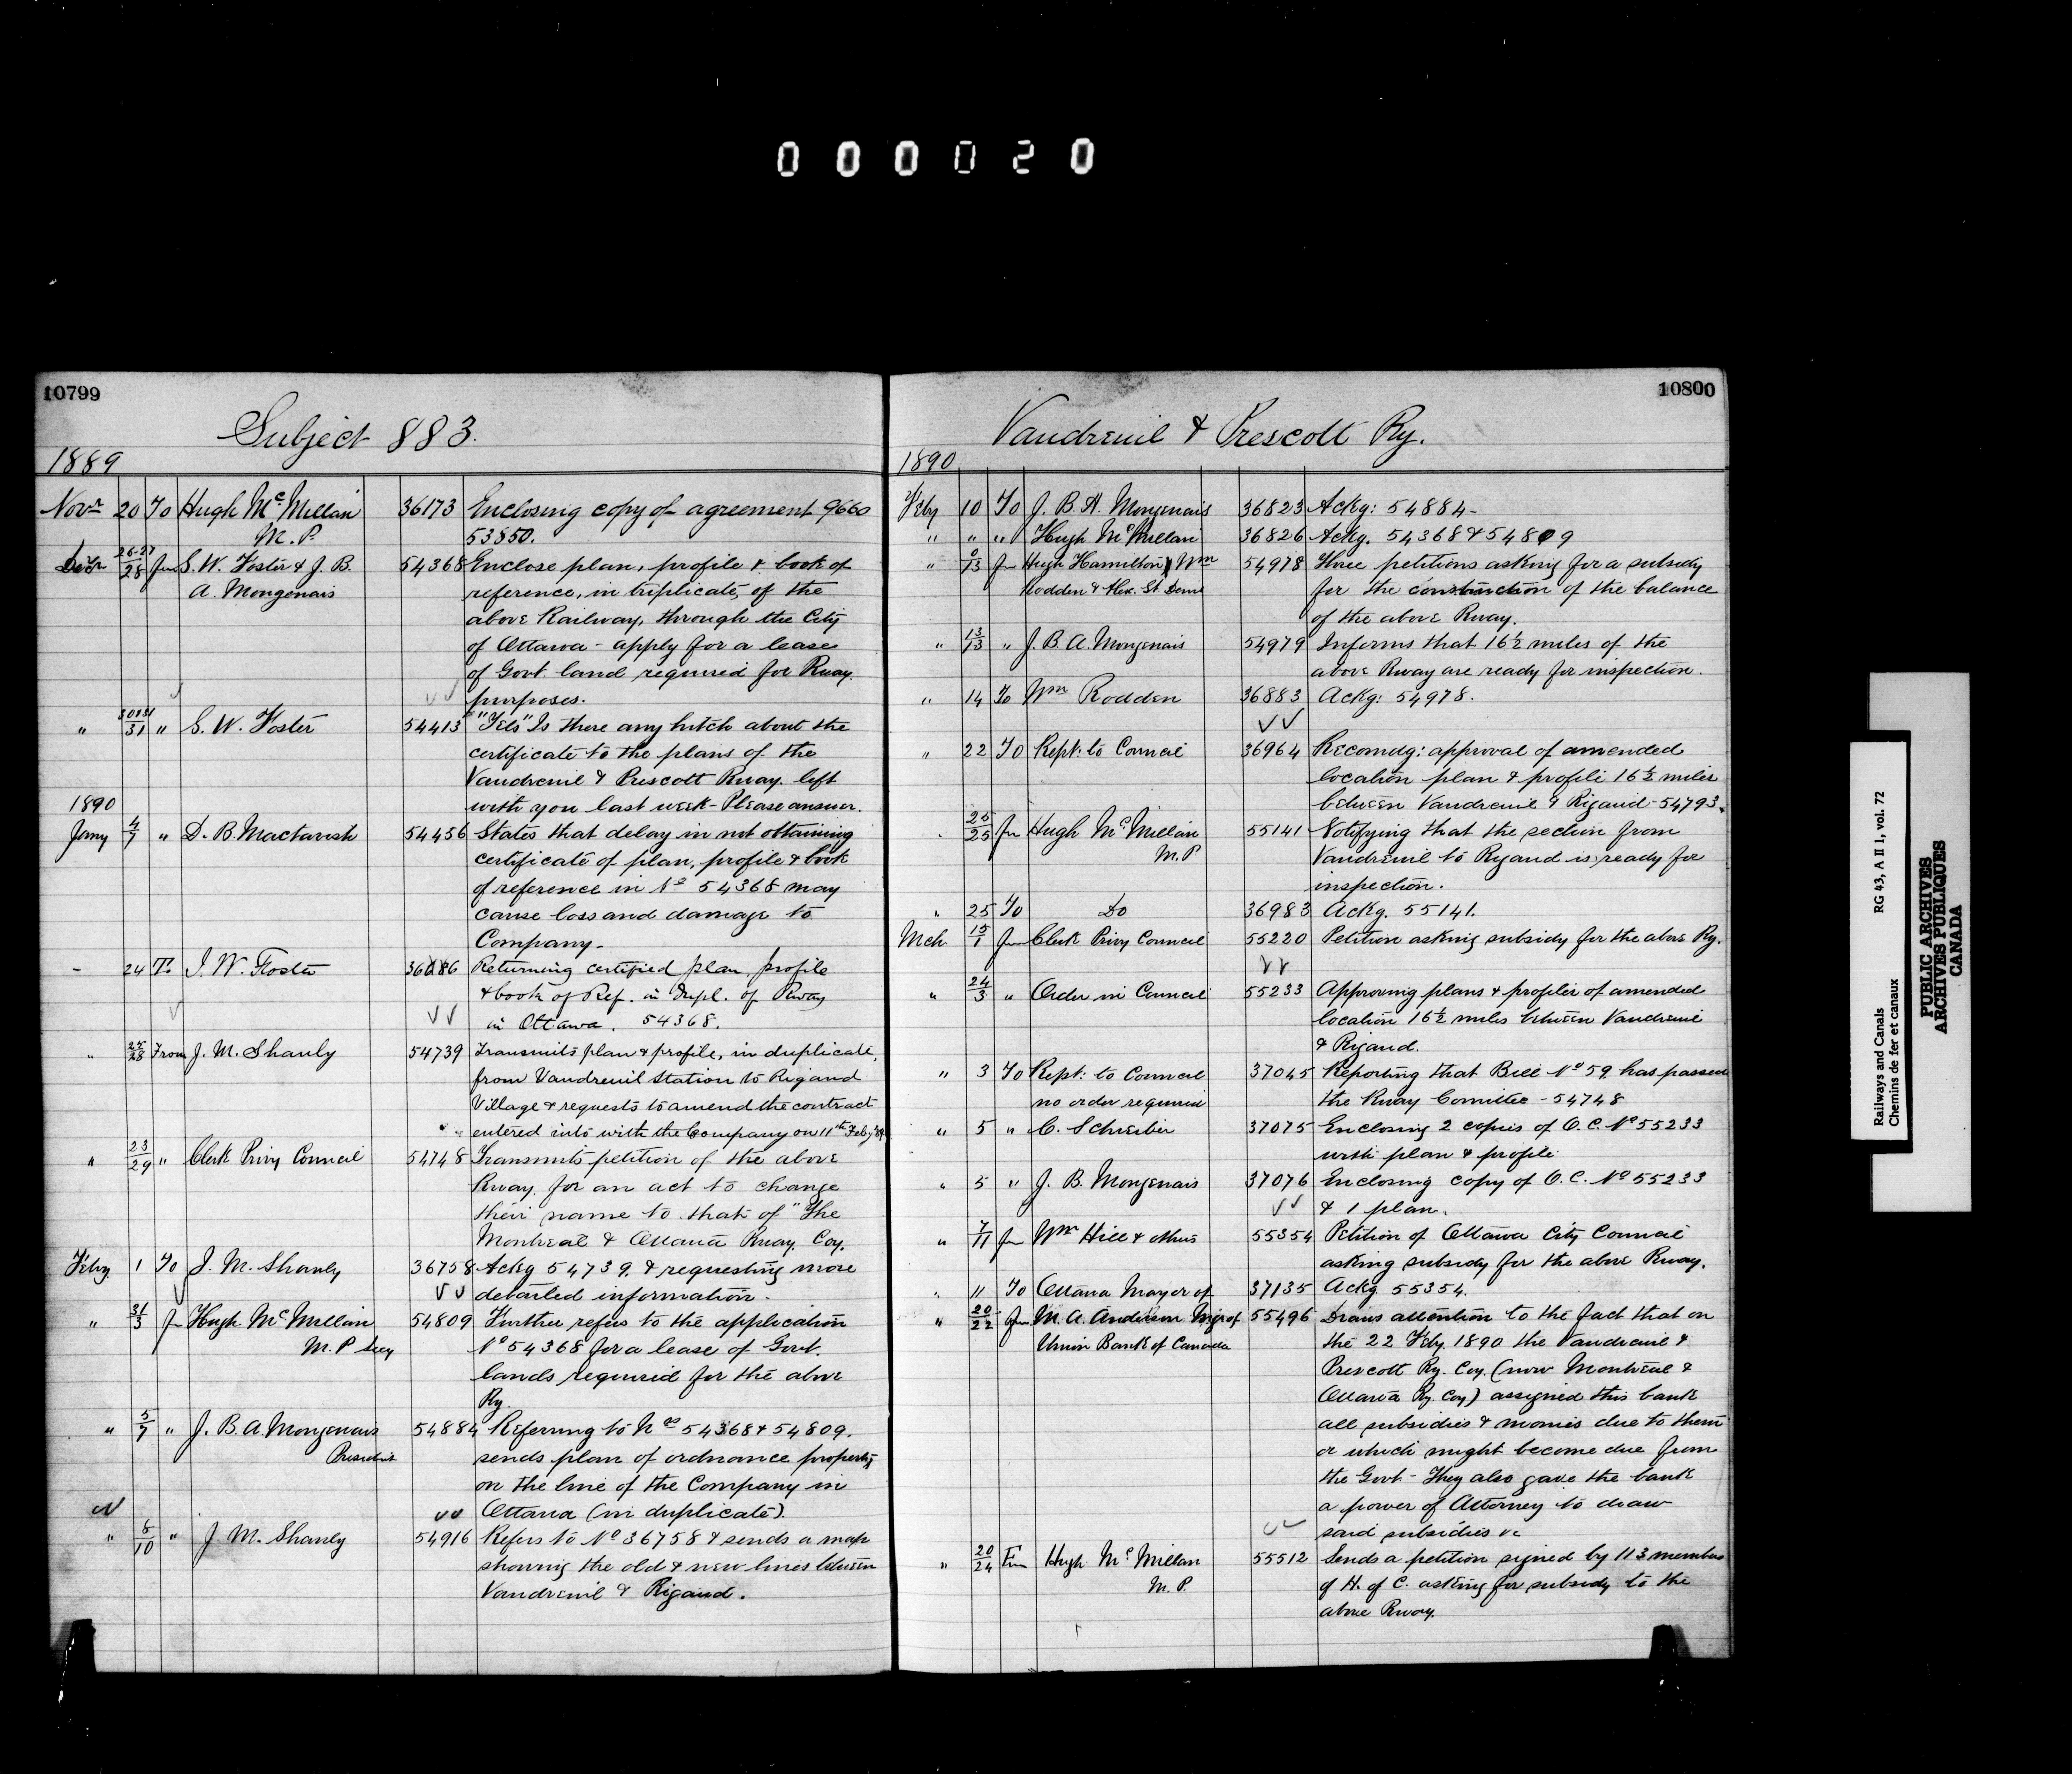 000020
10799
Subject 883.
1889
Novr 20 To Hugh McMillan 36173 Enclosing copy of agreement 9660
M.P. 53850.
Decr 26-27/28 fm S. W. Foster & J. B. 54368 Enclose plan, profile & book of
A. Mongenais reference, in triplicate, of the
above Railway, through the City
of Ottawa - apply for a lease
of Govt. land required for Rway.
purposes.
" 30&31/31 " S. W. Foster 54413 "Tels" Is there any hitch about the
certificate to the plans of the
Vaudreuil & Prescott Rway. left
with you last week - Please answer.
1890
Jany 4/7 " D. B. Mactavish 54456 States that delay in not obtaining
certificate of plan, profile & book
of reference in No 54368 may
cause loss and damage to
Company -
- 24 To S. W. Foster Returning certified plan, profile
& book of Ref. in Dupl. of Rway
in Ottawa. 54368.
" 28 From J. M. Shanly 54739 Transmits plan & profile, in duplicate,
from Vaudreuil Station to Rigaud
Village & requests to amend the contract
entered into with the Company on 11th Feby '89
" 23/29 " Clerk Privy Council 54748 Transmits petition of the above
Rway. for an act to change
their name to that of "The
Montreal & Ottawa Rway. Coy.
Feby 1 To J. M. Shanly 36758 Ackg 54739. & requesting more
detailed information.
" 31/3 fm Hugh McMillan 54809 Further refers to the application
M.P Secy No 54368 for a lease of Govt.
lands required for the above
Ry.
" 5/7 " J. B. A. Mongenais 54884 Referring to Nos 54368 & 54809.
President sends plan of ordnance property
on the line of the Company in
Ottawa (in duplicate).
" 8/10 " J. M. Shanly 54916 Refers to No 36758 & sends a map
showing the old & new lines between
Vaudreuil & Rigaud.
10800
Vaudreuil & Prescott Ry.
1890
Feby 10 To J. B. A. Mongenais 36823 Ackg: 54884 -
" " " Hugh McMillan 36826 Ackg. 54368 & 54809
" 13 fm Hugh Hamilton, Wm 54978 Three petitions asking for a subsidy
Rodden & Alex. St Denis for the construction of the balance
of the above Rway.
" 13/13 " J. B. A. Mongenais 54979 Informs that 16½ miles of the
above Rway are ready for inspection.
" 14 To Wm Rodden 36883 Ackg: 54978.
" 22 To Rept: to Council 36964 Recomdg: approval of amended
location plan & profile 16½ miles
between Vaudreuil & Rigaud - 54793.
" 25/25 fm Hugh McMillan 55141 Notifying that the section from
M.P Vaudreuil to Rigaud is ready for
inspection.
" 25 To Do 36983 Ackg. 55141.
Mch 15/1 fm Clerk Privy Council 55220 Petition asking subsidy for the above Ry.
" 24/3 " Order in Council 55233 Approving plans & profiles of amended
location 16½ miles between Vaudreuil
& Rigaud.
" 3 To Rept: to Council 37045 Reporting that Bill No 59 has passed
no order required the Rway Comittee - 54748
" 5 " C. Schreiber 37075 Enclosing 2 copies of O. C. No 55233
with plan & profile.
" 5 " J. B. Mongenais 37076 Enclosing copy of O. C. No 55233
& 1 plan.
" 7/11 fm Wm Hill & others 55354 Petition of Ottawa City Council
asking subsidy for the above Rway.
" 11 To Ottawa Mayor of 37135 Ackg 55354.
" 20/22 fm M. A. Anderson Mgr of 55496 Draws attention to the fact that on
Union Bank of Canada the 22 Feby. 1890 the Vaudreuil &
Prescott Ry. Coy. (now Montreal &
Ottawa Ry. Coy) assigned this bank
all subsidies & monies due to them
or which might become due from
the Govt - They also gave the bank
a power of Attorney to draw
said subsidies &c
" 20/24 Fm Hugh McMillan 55512 Sends a petition signed by 113 members
M.P. of H. of C. asking for subsidy to the
above Rway.
Railways and Canals RG 43, A II 1, vol. 72
Chemins de fer et canaux
PUBLIC ARCHIVES
ARCHIVES PUBLIQUES
CANADA